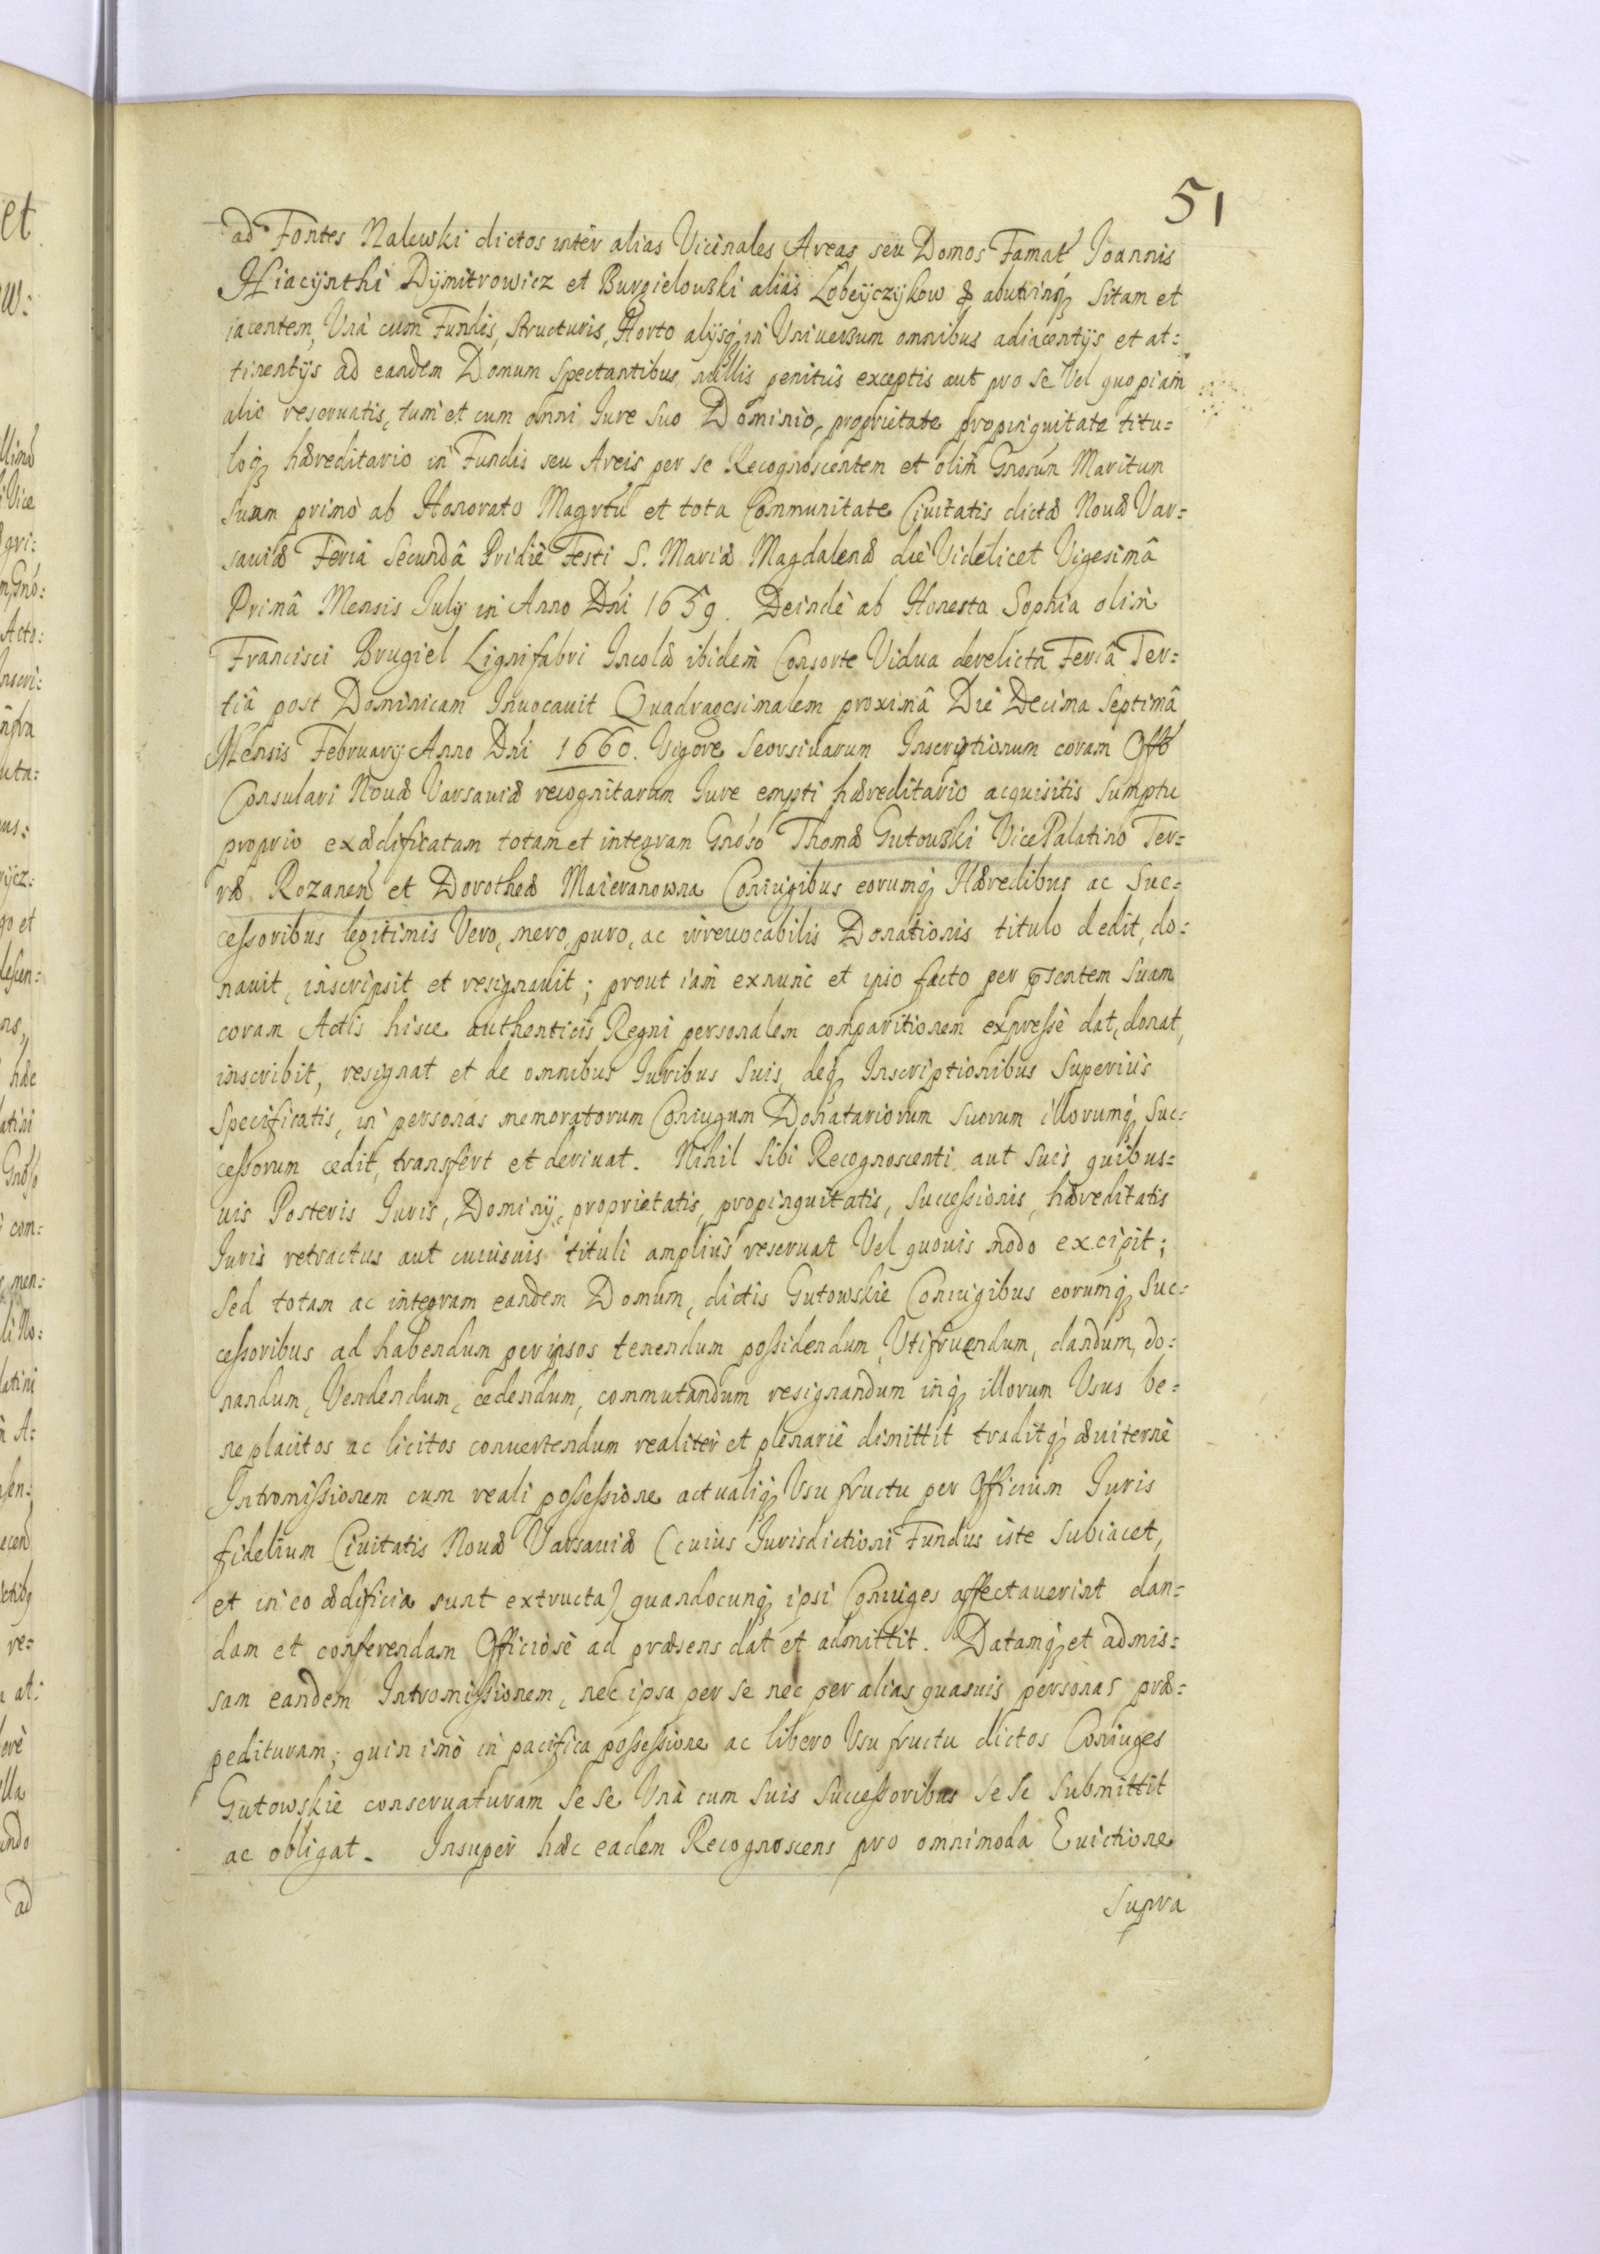 51
ad Fontes Nalewski dictos inter alias Vicinales Areas seu Domos Famat Joannis
Hiacÿnthi Dÿmitrowicz et Burgielowski aliàs Lobeÿczÿkow & abutrinq3 sitam et
iacentem, Unà cum Fundis, structuris, Horto alijsq3 in Universum omnibus adiacentijs et at:
tinentijs ad eandem Domum spectantibus nullis penitus exceptis aut pro se Vel quopiam
alio reseruatis, tum et cum omni Iure suo Dominio, proprietate propinquitate titu:
loq3 hæreditario in Fundis seu Areis per se Recognoscentem et olim Gnosum Maritum
suum primò ab Honorato Magrtu et tota Communitate Ciuitatis dictæ Nouæ Var:
sauiæ Feriâ Secundâ Pridie Festi S. Mariæ Magdalenæ die Videlicet Vigesimâ
Primâ Mensis July in Anno Dni 1659. Deinde ab Honesta Sophia olim
Francisci Brugiel Lignifabri Incolæ ibidem Consorte Vidua derelicta Feriâ Ter:
tiâ post Dominicam Inuocauit Quadragesimalem proximâ Die Decima Septimâ
Mensis February Anno Dni 1660. Vigore seorsiuarum Inscriptionum coram Offo
Consulari Nouæ Varsauiæ recognitarum Iure empti hæreditario acquisitis sumptu
proprio exædificatam totam et integram Gnoso Thomæ Gutowski Vice Palatino Ter:
ræ Rozanen et Dorotheæ Maieranowna Coniugibus eorumq3 Hæredibus ac Suc:
cessoribus legitimis Vero, mero, puro, ac irreuocabilis Donationis titulo dedit, do:
nauit, inscripsit et resignauit; prout iam exnunc et ipso facto per psentem suam
coram Actis hisce authenticis Regni personalem comparitionem expressè dat, donat,
inscribit, resignat et de omnibus Iuribus suis, deq3 Inscriptionibus superius
specificatis, in personas memoratorum Coniugum Donatariorum suorum illorumq3 suc:
cessorum cedit, transfert et deriuat. Nihil sibi Recognoscenti aut suis quibus:
uis Posteris Iuris, Dominij, proprietatis, propinquitatis, successionis, hæreditatis
Iuris retractus aut cuiusuis tituli amplius reseruat Vel quouis modo excipit;
sed totam ac integram eandem Domum, dictis Gutowskie Coniugibus eorumq3 suc:
cessoribus ad habendum per ipsos tenendum possidendum, Utifruendum, dandum, do:
nandum, Vendendum, cedendum, commutandum resignandum inq3 illorum Usus be:
neplacitos ac licitos conuertendum realiter et plenariè dimittit traditq3 æuiternè
Intromissionem cum reali possessione actualiq3 Usufructu per Officium Iuris
fidelium Ciuitatis Nouæ Varsauiæ (cuius Iurisdictioni Fundus iste subiacet,
et in eo ædificia sunt extructa) quandocunq3 ipsi Coniuges affectauerint dan:
dam et conferendam Officiosè ad præsens dat et admittit. Datamq3 et admis:
sam eandem Intromissionem, nec ipsa per se nec per alias quasuis personas præ:
pedituram; quin imò in pacifica possessione ac libero Usufructu dictos Coniuges
Gutowskie conseruaturam sese Unà cum suis successoribus sese submittit
ac obligat. Insuper hæc eadem Recognoscens pro omnimoda Euictione
supra